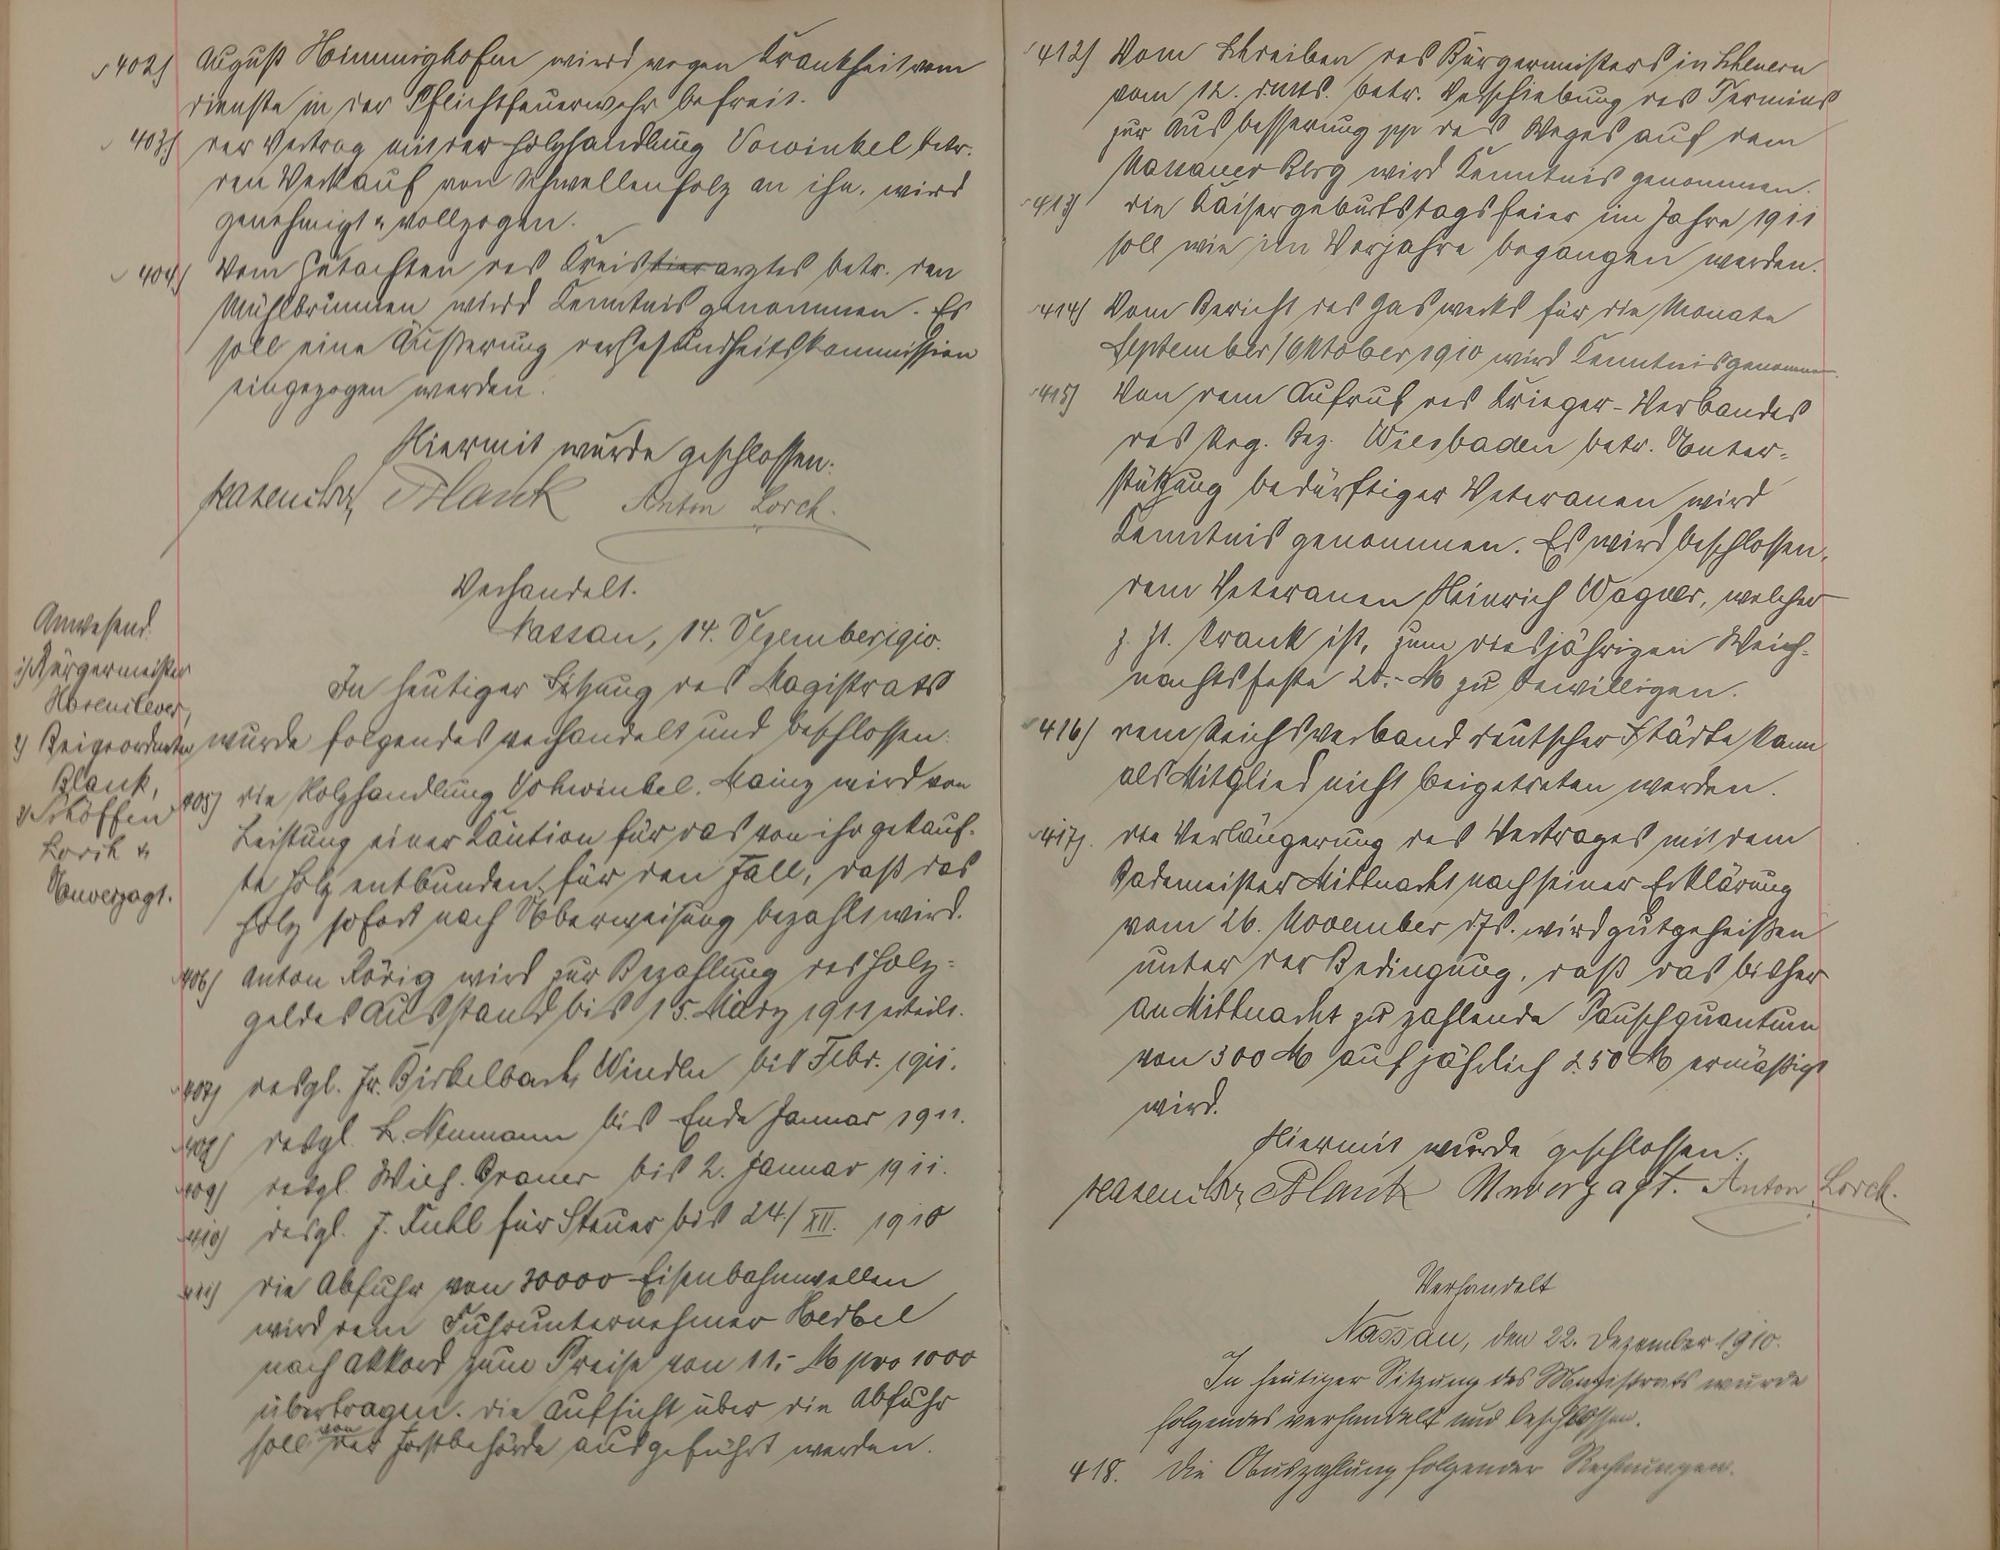 402) August Heinrighofen wird wegen Krankheit vom
dienste in der Pflichtfeuerwehr befreit.
403) der Vertrag mit der Holzhandlung Vowinkel betr.
den Verkauf von Schwellenholz an ihn, wird
genehmigt u. vollzogen.
404) Vom Gutachten des Kreistierarztes betr. den
Mühlbrunnen wird Kenntnis genommen. Es
soll eine Äußerung der Gesundheitskommission
eingezogen werden.
Hiermit wurde geschlossen:
Hasenclever Blank Anton Lorch.
Verhandelt.
Nassau, 14. Dezember 1910.
Anwesend.
1) Bürgermeister
Hasenclever,
2) Beigeordneter
Blank,
3) Schöffen
Lorch u.
Unverzagt.
In heutiger Sitzung des Magistrats
wurde folgendes verhandelt und beschlossen:
405) die Holzhandlung Vohwinkel, Mainz wird von
Leistung einer Kaution für das von ihr gekauf-
te Holz entbunden, für den Fall, daß das
Holz sofort nach Überweisung bezahlt wird.
406) Anton Rörig wird zur Bezahlung des Holz-
geldes Ausstand bis 15. März 1911 erteilt.
407) desgl. Fr. Birkelbach, Winden bis Febr. 1911.
408) desgl. L. Neumann bis Ende Januar 1911.
409) desgl. Wilh. Graner bis 2. Januar 1911.
410) desgl. J. Kuhl für Steuer bis 24/XII. 1910
411) die Abfuhr von 30000 Eisenbahnwellen
wird dem Fuhrunternehmer Herbel
nach Akkord zum Preise von 11.- M pro 1000
übertragen. die Aufsicht über die Abfuhr
soll von der Forstbehörde ausgeführt werden.
412) Vom Schreiben des Bürgermeisters in Scheuern
vom 12. d. Mts. betr. Verschiebung des Termins
zur Ausbesserung pp des Weges auf dem
Nassauer Berg wird Kenntnis genommen.
413) die Kaisergeburtstagsfeier im Jahre 1911
soll wie im Vorjahre begangen werden.
414) Vom Bericht des Gaswerks für die Monate
September/Oktober 1910 wird Kenntnis genommen.
415) Von dem Aufruf des Krieger-Verbandes
des Reg. Bez. Wiesbaden betr. Unter-
stützung bedürftiger Veteranen wird
Kenntnis genommen. Es wird beschlossen,
dem Veteranen Heinrich Wagner, welcher
z. Zt. krank ist, zum diesjährigen Weih-
nachtsfeste 20.- M zu bewilligen.
416) dem Reichsverband deutscher Städte kann
als Mitglied nicht beigetreten werden.
417) die Verlängerung des Vertrages mit dem
Bademeister Mittnacht nach seiner Erklärung
vom 26. November d. Js. wird gutgeheißen
unter der Bedingung, daß das bisher
an Mittnacht zu zahlende Pauschquantum
von 300 M auf jährlich 250 M ermäßigt
wird.
Hiermit wurde geschlossen:
Hasenclever Blank Unverzagt. Anton Lorch.
Verhandelt
Nassau, den 22. Dezember 1910.
In heutiger Sitzung des Magistrats wurde
folgendes verhandelt und beschlossen.
418. Die Auszahlung folgender Rechnungen.